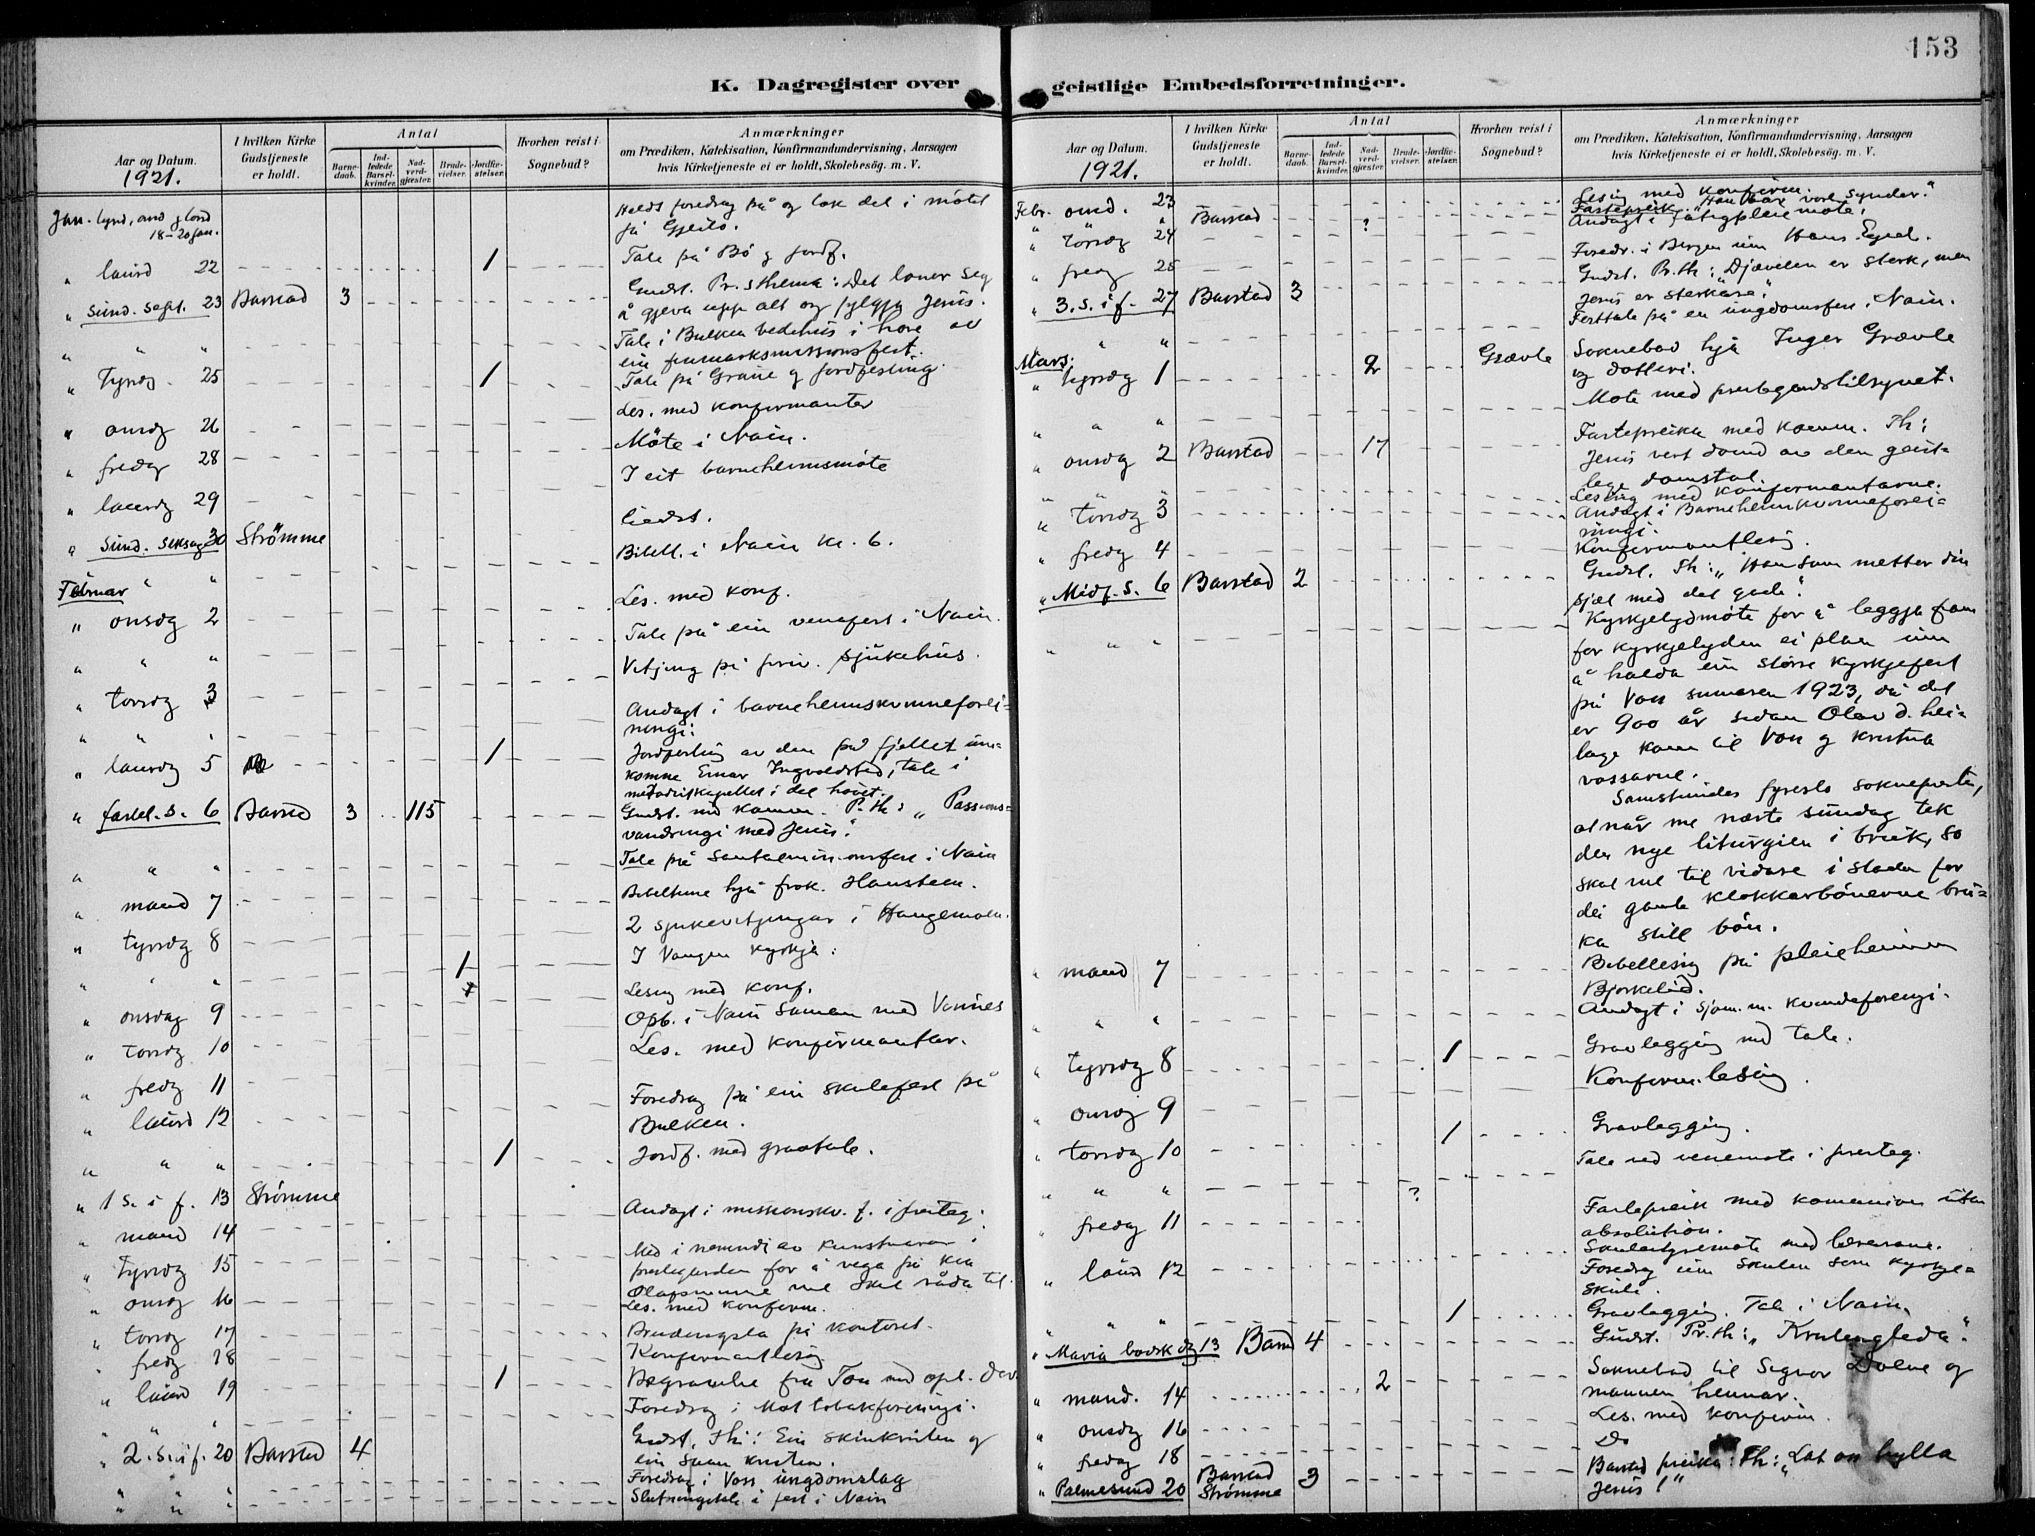 153
K. Dagregister over geistlige Embedsforretninger.
Aar og Datum. 1921.
I hvilken Kirke Gudstjeneste er holdt.
Antal
Barnedaab.
Indledede Barselkvinder.
Nadverdgjæster.
Brudevielser.
Jordfæstelser.
Hvorhen reist i Sognebud?
Anmærkninger
om Prædiken, Katekisation, Konfirmandundervisning, Aarsagen
hvis Kirketjeneste ei er holdt, Skolebesög. m. V.
Jan. 18-20 jan. foredrag på og det i møtet
på
" laurd 22 1 Tale på Bø g jordf.
" Sund. sept. 23 Barstad 3 Gudst. Pr.sthema: Det løner seg
å gjeva upp alt og fylgja Jesus.
" " " Tale i Bulken bedehus i høve av
ein finmarksmissionsfest.
" Tyrsdg. 25 1 Tale på Graue g jordfesting.
Les. med konfirmanter
" onsdg 26 Møte i Nain.
" fredag 28 I eit barneheimsmøte
" laurdg 29
Gudst.
" Sund. seksag 30 Strømme Bibell. i Nain kl. 6.
Februar " "
Les. med konf.
" onsdg 2 Tale på ein venefest i Nain.
" " " Vitjing på priv. sjukehus.
" torsdg 3 Andagt i barneheimskvinneforei=
ningi.
" laurdg 5 1 Jordfesting av den på fjellet um=
komne Einar tale i
metodistkapellet i det høvet.
" fastel. s. 6 Barsta 3 115 Gudst. med komm. P. th: „Passions=
vandringi med Jesus."
" " " Tale på Santalmisionsfest i Nain
" mand 7 Bibeltime hjå frøk. Hansteen.
" tyrsdg 8 2 sjukevitjingar i Haugemoen.
" " " 1 I Vangen kyrkja:
Lesing med konf.
" onsdag 9 Opb. i Nain Saman med Vonnes
" torsdg 10 Les. med konfirmantar.
" fredg 11
" laurd 12 Foredrag på ein skulefest på
Bulken.
" " " 1 Jordf. med gravtale.
" 1 s. i f. 13 Strømme
" mand 14 Andagt i missionskv. f. i
" Tyrsdg 15 Med i nemndi av i
prestegarden for å vega på kva
Olafsminne me skal råda til.
" onsdg 16 Les. med konfirm.
" torsdg 17 på kontoret.
" fredg 18 Konfirmantlesing
" laurd 19 1 fra med opl.
Foredrag i
" 2. s. i f. 20 Barstad 4 Gudst. Th: Ein skinkristen og
ein sann kristen.
" " " Foredrag i Voss ungdomslag
" " " Slutningstale i fest i Nain
Aar og Datum. 1921.
I hvilken Kirke Gudstjeneste er holdt.
Antal
Barnedaab.
Indledede Barselkvinder.
Nadverdgjæster.
Brudevielser.
Jordfæstelser.
Hvorhen reist i Sognebud?
Anmærkninger
om Prædiken, Katekisation, Konfirmandundervisning, Aarsagen
hvis Kirketjeneste ei er holdt, Skolebesög. m. V.
Febr. onsd. 23 Lesing med konfirm.
" " Barstad ? Fastepreik. "Han bær vore synder."
" torsdg 24 Andagt i fatigpleiemøte.
" fredg 25 Foredr. i Bergen um Hans Egede.
" 3. s. i f. 27 Barstad 3 Gudst. Pr. th: „Djævelen er sterk, men
Jesus er sterkare."
" " Festtale på en ungdomsfest i Nain.
Mars:
" tyrsdg 1 2 Græve Soknebod hjå Inger Græve
og dotteri.
" " " Møte med prestegardstilsynet.
" onsdag 2 Barstad 17 Fastepreika med komm. Th:
Jesus vert dømd av den geist=
lege domstol.
Lesing med konfirmantarne.
" torsdg 3 Andagt i Barneheimkvinneforei=
ningi.
" fredg 4 Konfirmantlesing.
" Midf. s. 6 Barstad 2 Gudst. Th: „Han som metter din
sjæl med det gode."
" " " Kyrkjelydmøte for å leggja fram
for kyrkjelyden ei plan um
å halda ein større kyrkjefest
på Voss sumaren 1923, då det
er 900 år sidan Olav d. hei=
lage kom til Voss g kristna
vossarne.
Samstundes fyreslo sokneprest,
at når me næste sundag tek
den nye liturgien i bruk, so
skal me til vidare i staden for
dei gamle klokkarbönerne bru=
ka still bön.
" mand 7 Bibellesing på pleieheimen
Bjørkelid.
" " " Andagt i Sjøm. m. kvindeforengi.
" tyrsdg 8 1 Gravlegging med tale.
" onsdg 9 Konfirm. lesing.
" torsdag 10 1 Gravlegging.
" " " Tale ved venemøte i presteg.
" fredag 11 ? Fastepreik med komunion utan
absolution.
" laurd 12 møte med lærarane.
Foredrag um skulen som kyrkje=
skule.
" " " 1 Gravlegging. Tale i Nain.
" Maria bodsk dg 13 Barstd 4 Gudst. Pr. th: „Kvilengleda".
" mand. 14 2 Soknebod til Signor Dolve og
mannen hennar.
" onsdg 16 Les. med konfirm.
" fredag 18 Do
" Palmesund 20 Barstad 3 Barstad preika: Th: „Lat oss hylla
Strømme Jesus!"